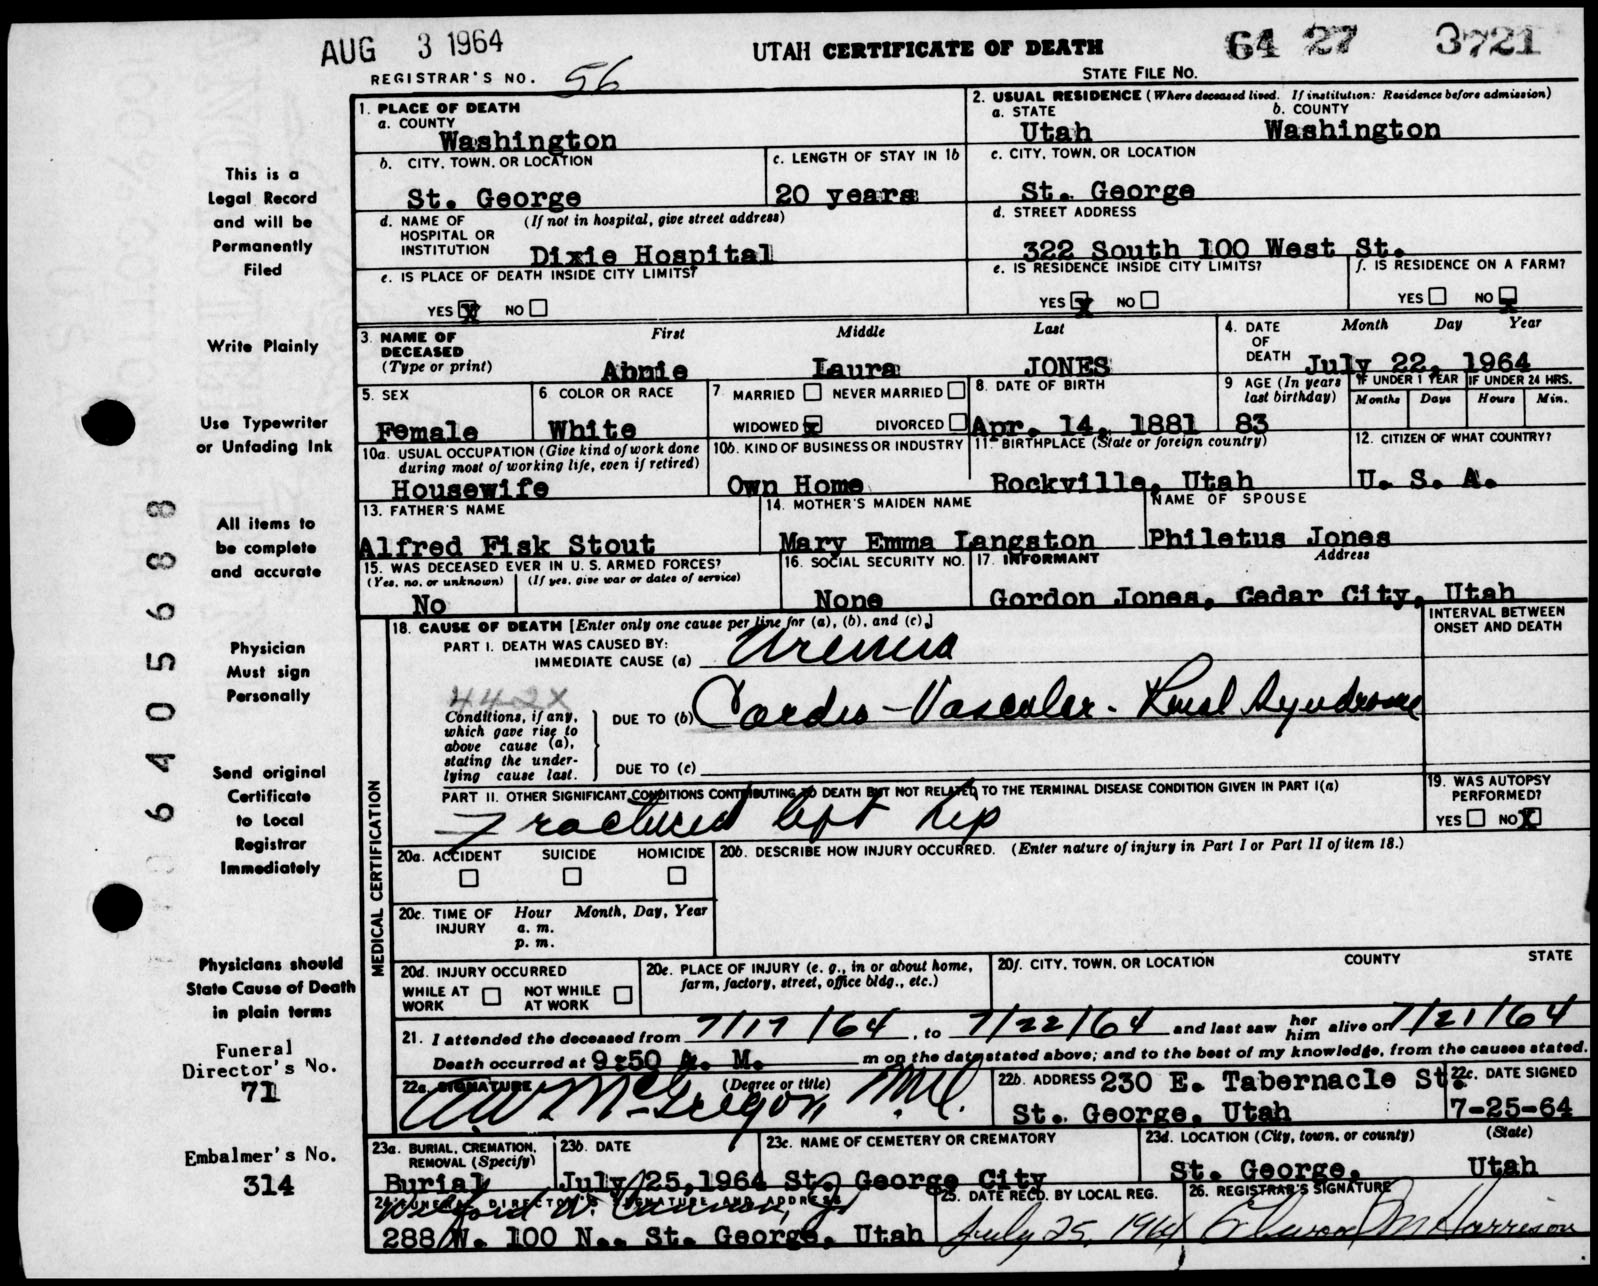 AUG 3 1964
UTAH CERTIFICATE OF DEATH
64 27 3721
REGISTRAR'S NO. 56
STATE FILE NO.
1. PLACE OF DEATH
a. COUNTY
Washington
2. USUAL RESIDENCE (Where deceased lived. If institution: Residence before admission)
a. STATE b. COUNTY
Utah Washington
b. CITY, TOWN, OR LOCATION
St. George
c. LENGTH OF STAY IN 1b
20 years
c. CITY, TOWN, OR LOCATION
St. George
d. NAME OF HOSPITAL OR INSTITUTION (If not in hospital, give street address)
Dixie Hospital
d. STREET ADDRESS
322 South 100 West St.
e. IS PLACE OF DEATH INSIDE CITY LIMITS?
YES X NO
e. IS RESIDENCE INSIDE CITY LIMITS?
YES X NO
f. IS RESIDENCE ON A FARM?
YES NO X
3. NAME OF DECEASED (Type or print)
First Middle Last
Annie Laura JONES
4. DATE OF DEATH Month Day Year
July 22, 1964
5. SEX
Female
6. COLOR OR RACE
White
7. MARRIED NEVER MARRIED
WIDOWED X DIVORCED
8. DATE OF BIRTH
Apr. 14, 1881
9 AGE (In years last birthday)
83
IF UNDER 1 YEAR
Months Days
IF UNDER 24 HRS.
Hours Min.
10a. USUAL OCCUPATION (Give kind of work done during most of working life, even if retired)
Housewife
10b. KIND OF BUSINESS OR INDUSTRY
Own Home
11. BIRTHPLACE (State or foreign country)
Rockville, Utah
12. CITIZEN OF WHAT COUNTRY?
U. S. A.
13. FATHER'S NAME
Alfred Fisk Stout
14. MOTHER'S MAIDEN NAME
Mary Emma Langston
NAME OF SPOUSE
Philetus Jones
15. WAS DECEASED EVER IN U. S. ARMED FORCES?
(Yes, no, or unknown) (If yes, give war or dates of service)
No
16. SOCIAL SECURITY NO.
None
17. INFORMANT Address
Gordon Jones, Cedar City, Utah
MEDICAL CERTIFICATION
18. CAUSE OF DEATH [Enter only one cause per line for (a), (b), and (c).]
INTERVAL BETWEEN ONSET AND DEATH
PART I. DEATH WAS CAUSED BY:
IMMEDIATE CAUSE (a) Uremia
442X
Conditions, if any, which gave rise to above cause (a), stating the underlying cause last.
DUE TO (b) Cardio-Vascular-Renal Syndrome
DUE TO (c)
PART II. OTHER SIGNIFICANT CONDITIONS CONTRIBUTING TO DEATH BUT NOT RELATED TO THE TERMINAL DISEASE CONDITION GIVEN IN PART I(a)
Fractured left hip
19. WAS AUTOPSY PERFORMED?
YES NO X
20a. ACCIDENT SUICIDE HOMICIDE
20b. DESCRIBE HOW INJURY OCCURRED. (Enter nature of injury in Part I or Part II of item 18.)
20c. TIME OF INJURY Hour Month, Day, Year
a. m.
p. m.
20d. INJURY OCCURRED
WHILE AT WORK NOT WHILE AT WORK
20e. PLACE OF INJURY (e. g., in or about home, farm, factory, street, office bldg., etc.)
20f. CITY, TOWN, OR LOCATION COUNTY STATE
21. I attended the deceased from 7/17/64, to 7/22/64 and last saw her him alive on 7/21/64
Death occurred at 9:50 A. M. m on the date stated above; and to the best of my knowledge, from the causes stated.
22a. SIGNATURE (Degree or title)
A.W. McGregor, M.D.
22b. ADDRESS 230 E. Tabernacle St.
St. George, Utah
22c. DATE SIGNED
7-25-64
23a. BURIAL, CREMATION, REMOVAL (Specify)
Burial
23b. DATE
July 25, 1964
23c. NAME OF CEMETERY OR CREMATORY
St. George City
23d. LOCATION (City, town, or county) (State)
St. George, Utah
24. FUNERAL DIRECTOR'S SIGNATURE AND ADDRESS
288 W. 100 N.. St. George, Utah
25. DATE RECD. BY LOCAL REG.
July 25, 1964
26. REGISTRAR'S SIGNATURE
Harrison
This is a
Legal Record
and will be
Permanently
Filed
Write Plainly
Use Typewriter
or Unfading Ink
All items to
be complete
and accurate
Physician
Must sign
Personally
Send original
Certificate
to Local
Registrar
Immediately
Physicians should
State Cause of Death
in plain terms
Funeral
Director's No.
71
Embalmer's No.
314
6405688